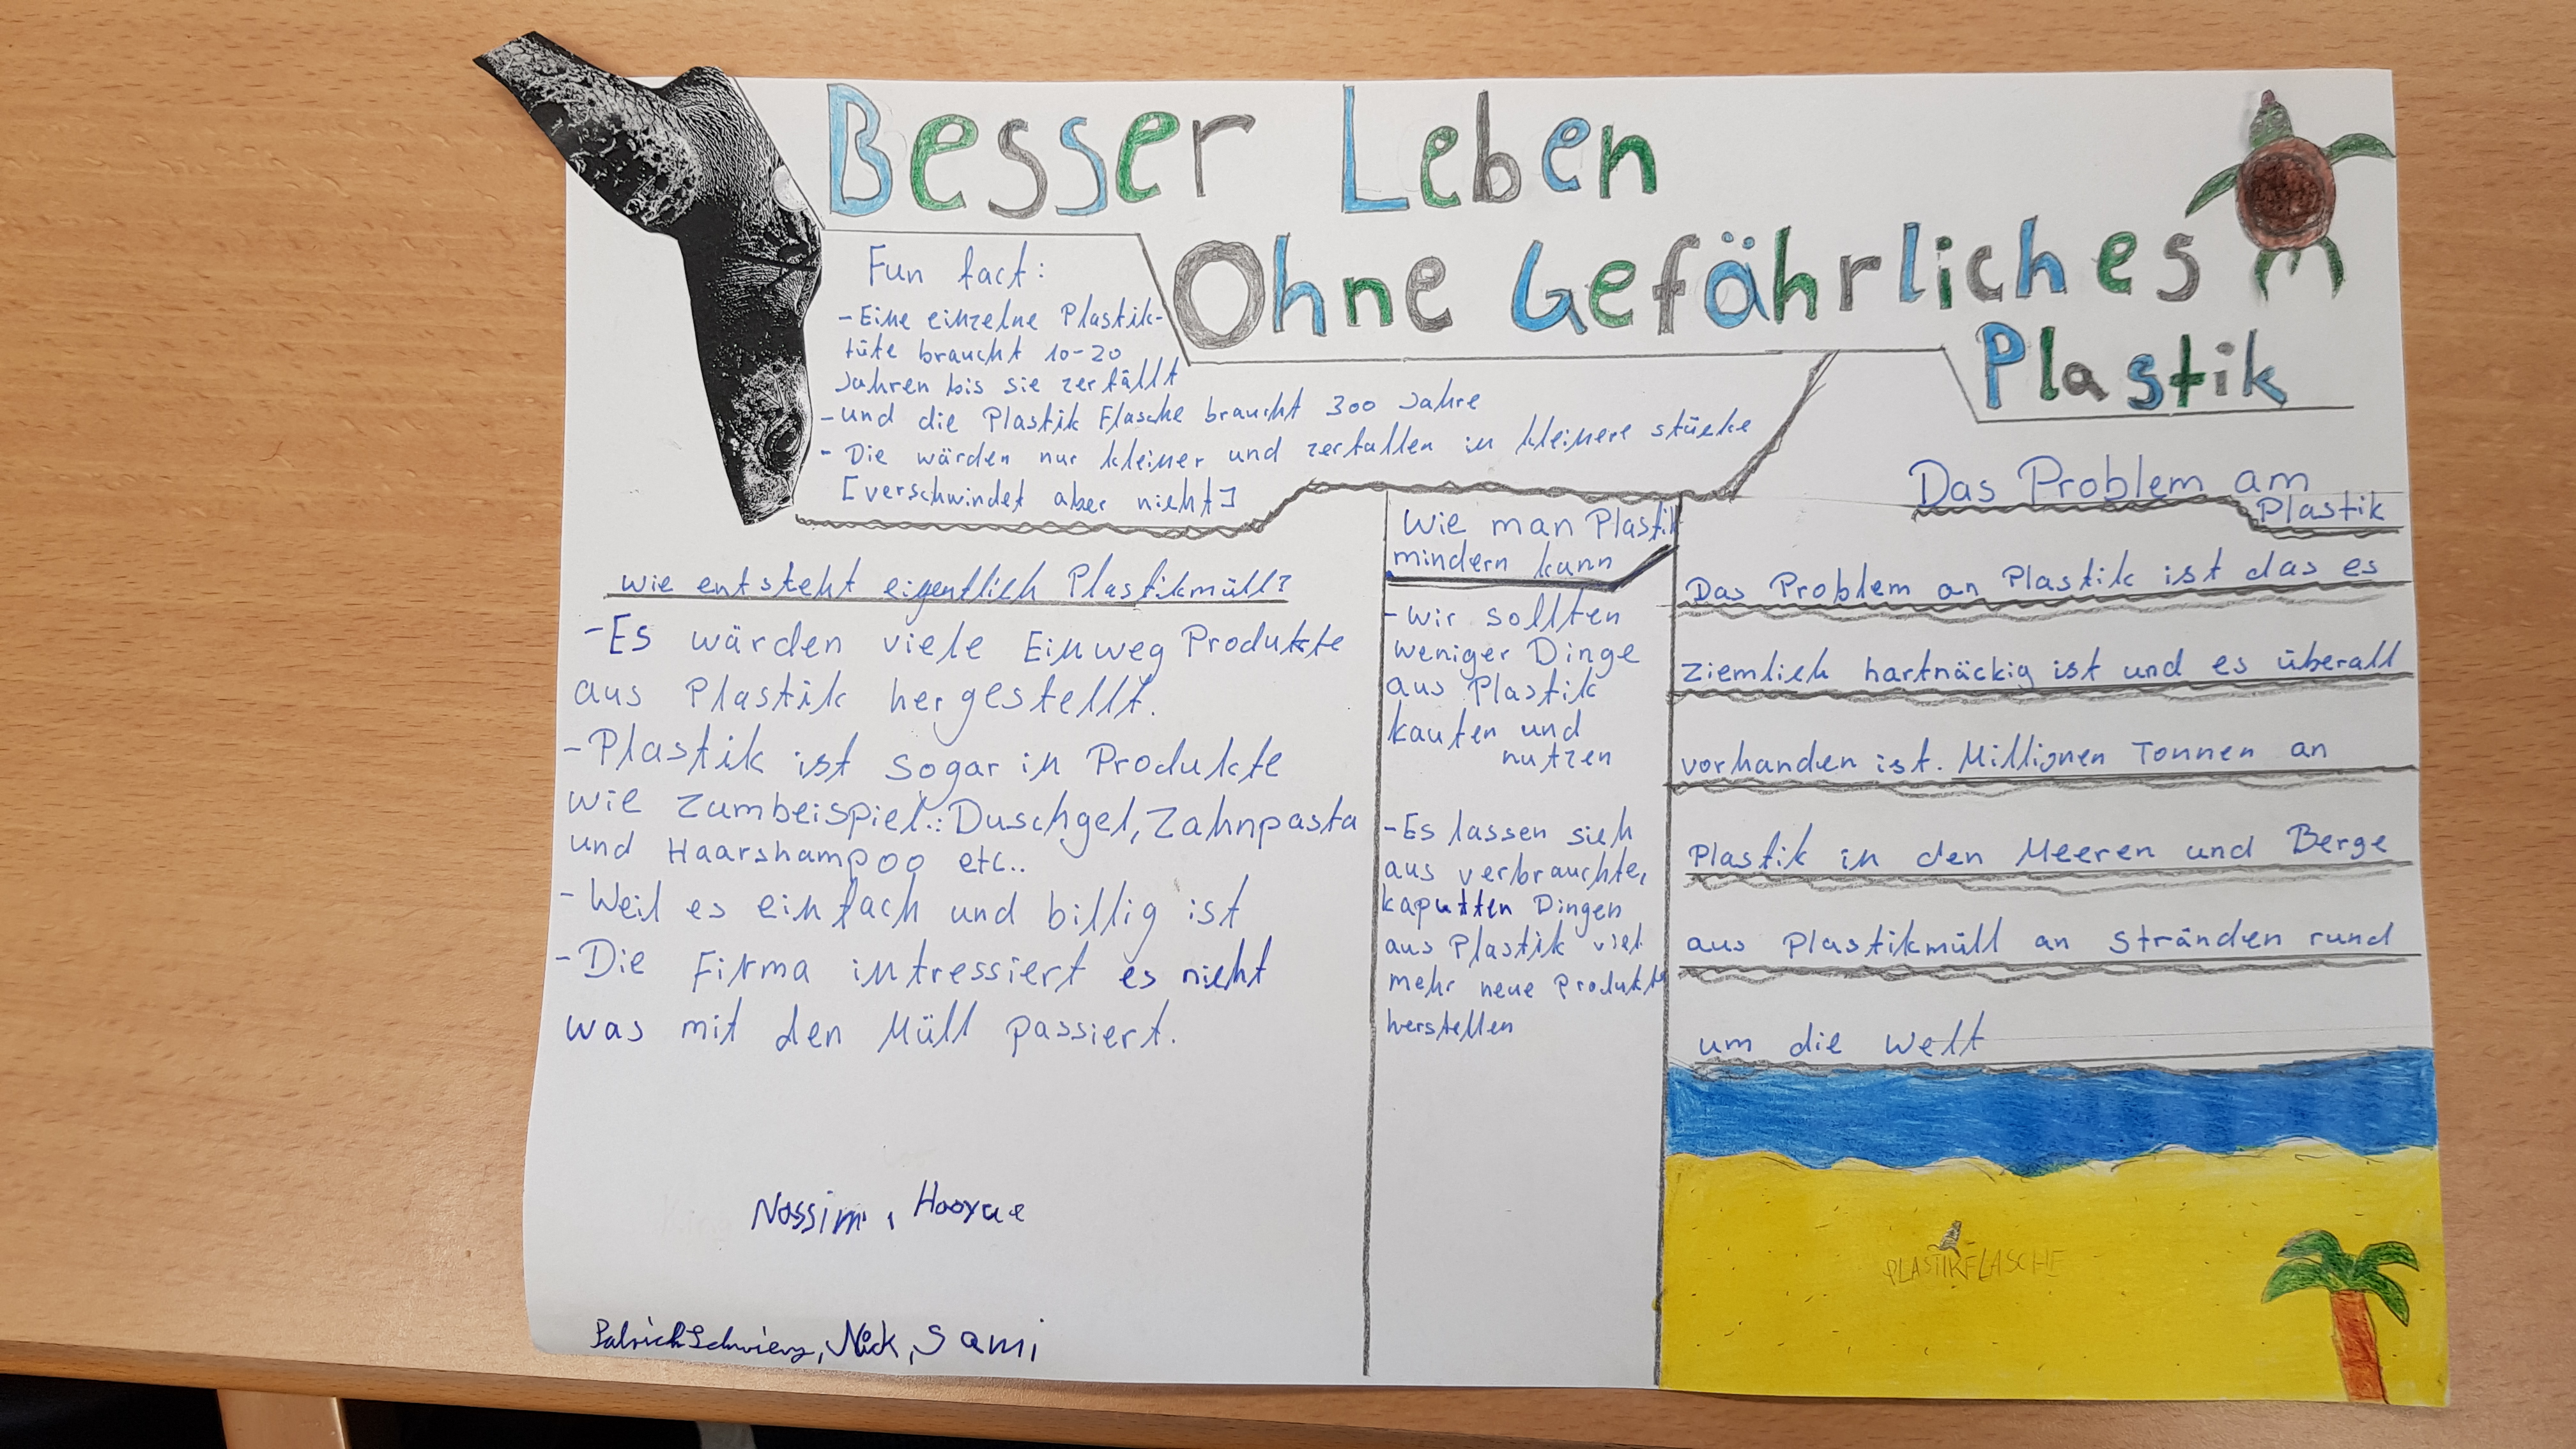 Besser Leben
Ohne Gefährliches
Plastik
Fun fact:
- Eine einzelne Plastik-
tüte braucht 10-20
Jahren bis sie zerfällt
- und die Plastik Flasche braucht 300 Jahre
- Die wärden nur kleiner und zerfallen in kleinere stücke
[verschwindet aber nicht]
wie entsteht eigentlich Plastikmüll?
- Es wärden viele Einweg Produkte
aus Plastik hergestellt.
- Plastik ist sogar in Produkte
wie zumbeispiel.: Duschgel, Zahnpasta
und Haarshampoo etc..
- Weil es einfach und billig ist
- Die Firma intressiert es nicht
was mit den Müll passiert.
Nassim,
Nick, Sami
Wie man Plastik
mindern kann
- wir sollten
weniger Dinge
aus Plastik
kaufen und
nutzen
- Es lassen sich
aus verbrauchte,
kaputten Dingen
aus Plastik viel
mehr neue Produkte
herstellen
Das Problem am
Plastik
Das Problem an Plastik ist das es
ziemlich hartnäckig ist und es überall
vorhanden ist. Millionen Tonnen an
Plastik in den Meeren und Berge
aus Plastikmüll an Stränden rund
um die Welt
PLASTIKFLASCHE